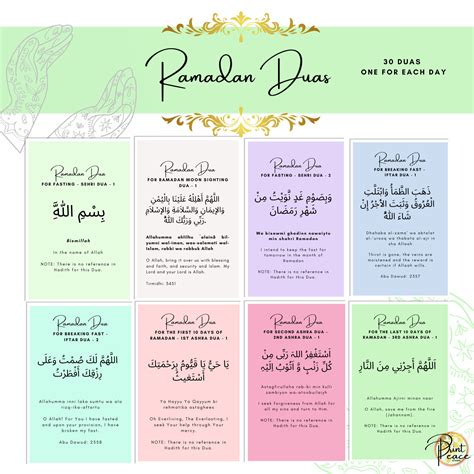 Ramadan Duas
30 DUAS
ONE FOR EACH DAY
Ramadan Dua
FOR FASTING - SEHRI DUA - 1
بِسْمِ اللَّهِ
Bismillah
In the name of Allah
NOTE: There is no reference in
Hadith for this Dua.
Ramadan Dua
FOR RAMADAN MOON SIGHTING
DUA - 1
اللَّهُمَّ أَهْلِلْهُ عَلَيْنَا بِالْيُمْنِ
وَالإِيمَانِ وَالسَّلاَمَةِ وَالإِسْلاَمِ
رَبِّي وَرَبُّكَ اللَّهُ
Allahumma ahlilhu 'alainā bil-
yumni wal-iman, was-salamati wal-
islam, rabbi wa rabbuk Allah
O Allah, bring it over us with blessing
and faith, and security and Islam. My
Lord and your Lord is Allah.
Tirmidhi: 3451
Ramadan Dua
FOR FASTING - SEHRI DUA - 2
وَبِصَوْمِ غَدٍ نَّوَيْتُ مِنْ
شَهْرِ رَمَضَانَ
Wa bisawmi ghadinn nawaiytu
min shahri Ramadan
I intend to keep the fast for
tomorrow in the month of
Ramadan
NOTE: There is no reference in
Hadith for this Dua.
Ramadan Dua
FOR BREAKING FAST -
IFTAR DUA - 1
ذَهَبَ الظَّمَأُ وَابْتَلَّتِ
الْعُرُوقُ وَثَبَتَ الأَجْرُ إِنْ
شَاءَ اللَّهُ
Thirst is gone, the veins are
moistened and the reward is
certain if Allah wills.
Abu Dawud: 2357
Ramadan Dua
FOR BREAKING FAST -
IFTAR DUA - 2
اللَّهُمَّ لَكَ صُمْتُ وَعَلَى
رِزْقِكَ أَفْطَرْتُ
Allahumma inni laka sumtu wa ala
rizq-ika-aftartu
O Allah! For You I have fasted
and upon your provision, I have
broken my fast.
Abu Dawud: 2358
Ramadan Dua
FOR THE FIRST 10 DAYS OF
RAMADAN - 1ST ASHRA DUA - 1
يَا حَيُّ يَا قَيُّومُ بِرَحْمَتِكَ
أَسْتَغِيثُ
Ya Hayyu Ya Qayyum bi
rehmatika astaghees
Oh Everliving, The Everlasting, I
seek Your help through
Your mercy.
NOTE: There is no reference in
Hadith for this Dua.
Ramadan Dua
FOR SECOND ASHRA DUA -
2ND ASHRA DUA - 1
أَسْتَغْفِرُ اللهَ رَبِّي مِنْ
كُلِّ ذَنْبٍ وَّأَتُوبُ إِلَيْهِ
Astaghfirullaha rab-bi min kulli
zambiyon wa-atoobuilaiyh
I seek forgiveness from Allah for
all my sins and turn to Him
NOTE: There is no reference in
Hadith for this Dua.
Ramadan Dua
FOR THE LAST 10 DAYS OF
RAMADAN - 3RD ASHRA DUA - 1
اللَّهُمَّ أَجِرْنِي مِنَ النَّارِ
Allahumma Ajirni minan naar
O Allah, save me from the fire
(jahannam)
NOTE: There is no reference in
Hadith for this Dua.
Print
Peace